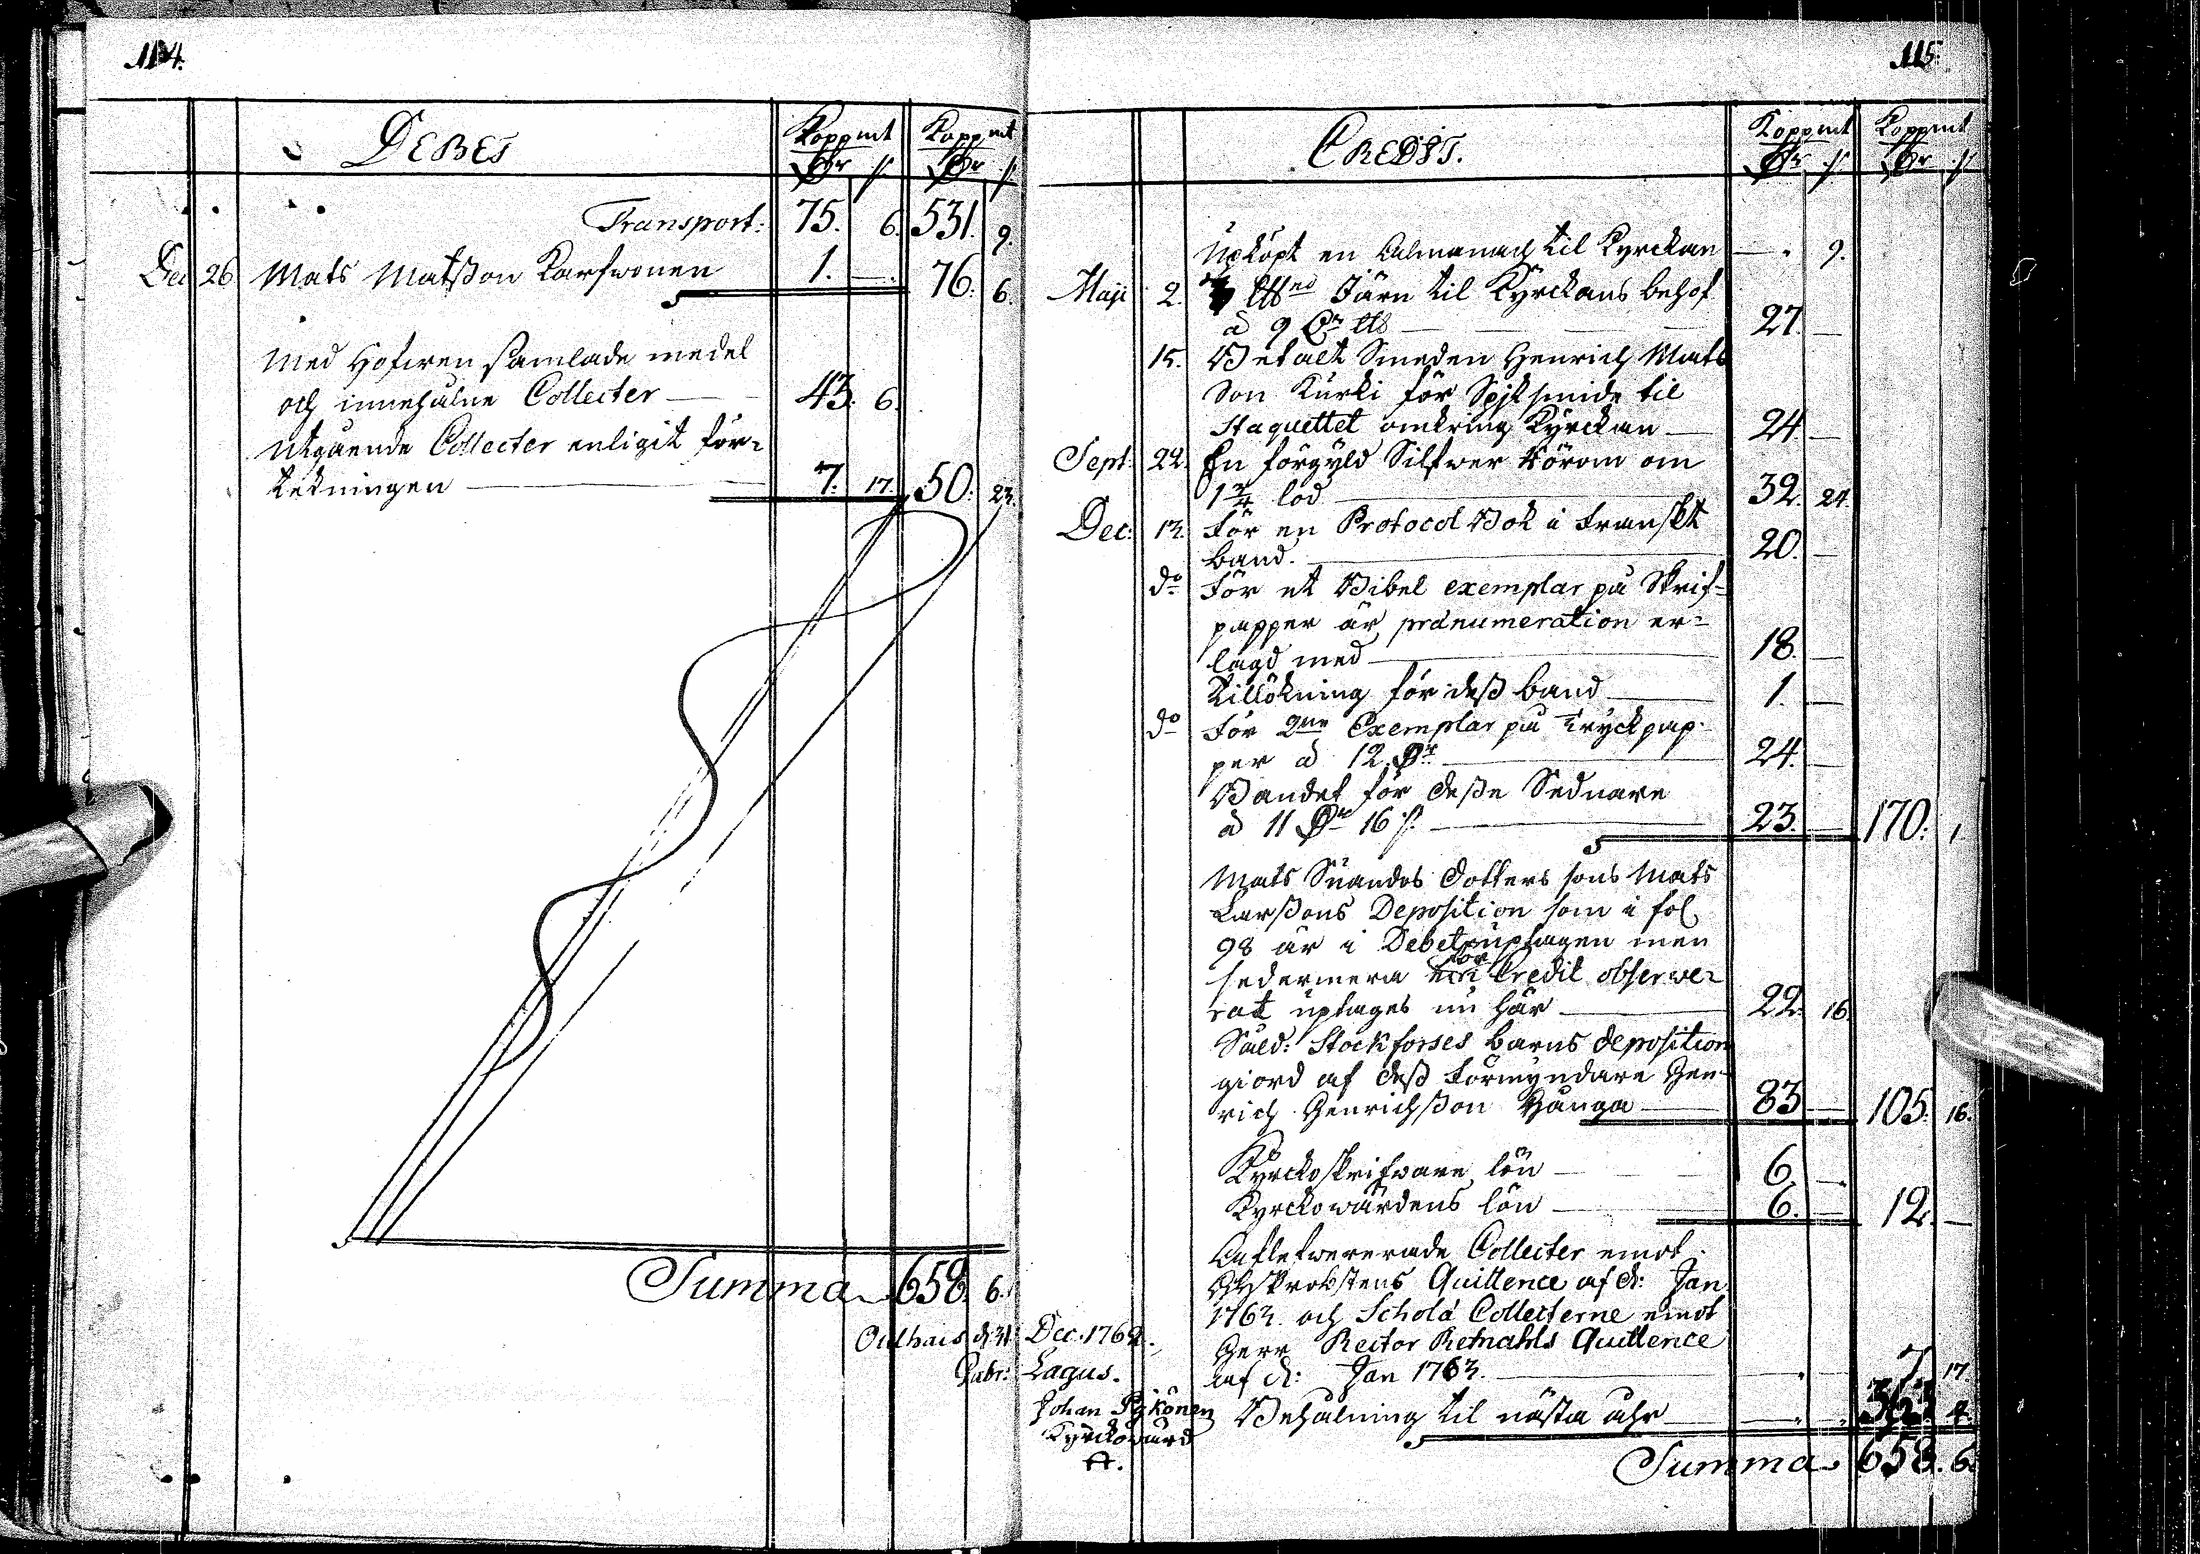 114.
DEBET
Koppmt Koppmt
Dr s. Dr s.
Transport: 75. 6. 531. 9.
Dec 26 Mats Matsson Karfwonen 1. — 76. 6.
Med Hofwen samlade medel
och innehålne Collecter — 43. 6.
Utgående Collecter enligit för=
tekningen — 7. 17. 50. 23.
Summa 658. 6.
Oulhais d. 31. Dec. 1762.
Gabr: Lagus.
Johan Pykönen
Kyrckowärd
115.
CREDIT.
Koppmt Koppmt
Dr s. Dr s.
Upköpt en Almanach til Kyrckan — 9.
Maji 2. Järn til Kyrckans behof
à 9 Dr — 27. —
15. Betalt Smeden Henrich Mats
Son Kurki för Spiksmide til
Staquettet omkring Kyrckan — 24. —
Sept: 22. En förgyld Silfwer om
1 3/4 lod — 32. 24.
Dec: 13. För en Protocol Bok i Franskt
band. — 20. —
do För et Bibel exemplar på Skrif=
papper är prænumeration er=
lagd med — 18. —
Tillökning för dess band — 1. —
do För 2ne Exemplar på Tryckpap=
per à 12 Dr — 24. —
Bandet för desse Sednare
à 11 Dr 16 s. — 23. — 170. 1.
Mats Suandos dotters sons Mats
Larssons Deposition som i fol
98 är i Debet uptagen men
sedermera för Credit observe=
rat uptages nu här — 22. 16.
Sald: Stockforses barns deposition
giord af dess Förmyndare Hen=
rich Henrichsson Hanga — 83 — 105. 16.
Kyrckoskrifware lön — 6. —
Kyrckowärdens lön — 6. — 12. —
Aflefwererade Collecter emot
Quittence af d: Jan
1763. och Schola Collecterne emot
Herr Rector Quittence
af d: Jan 1763. — 7. 17
Behålning til nästa åhr —
Summa 658. 6.